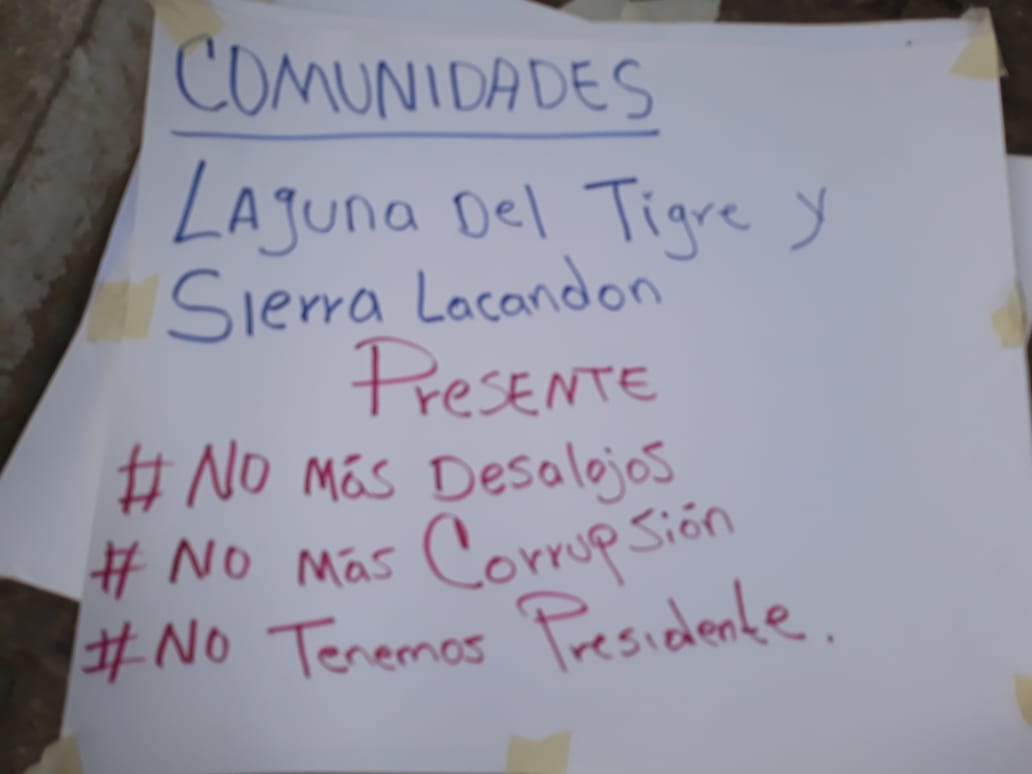 COMUNIDADES
LAguna Del Tigre y
Sierra Lacandon
PreSENTE
# No Más Desalojos
# No Más Corrupsión
# No Tenemos Presidente.